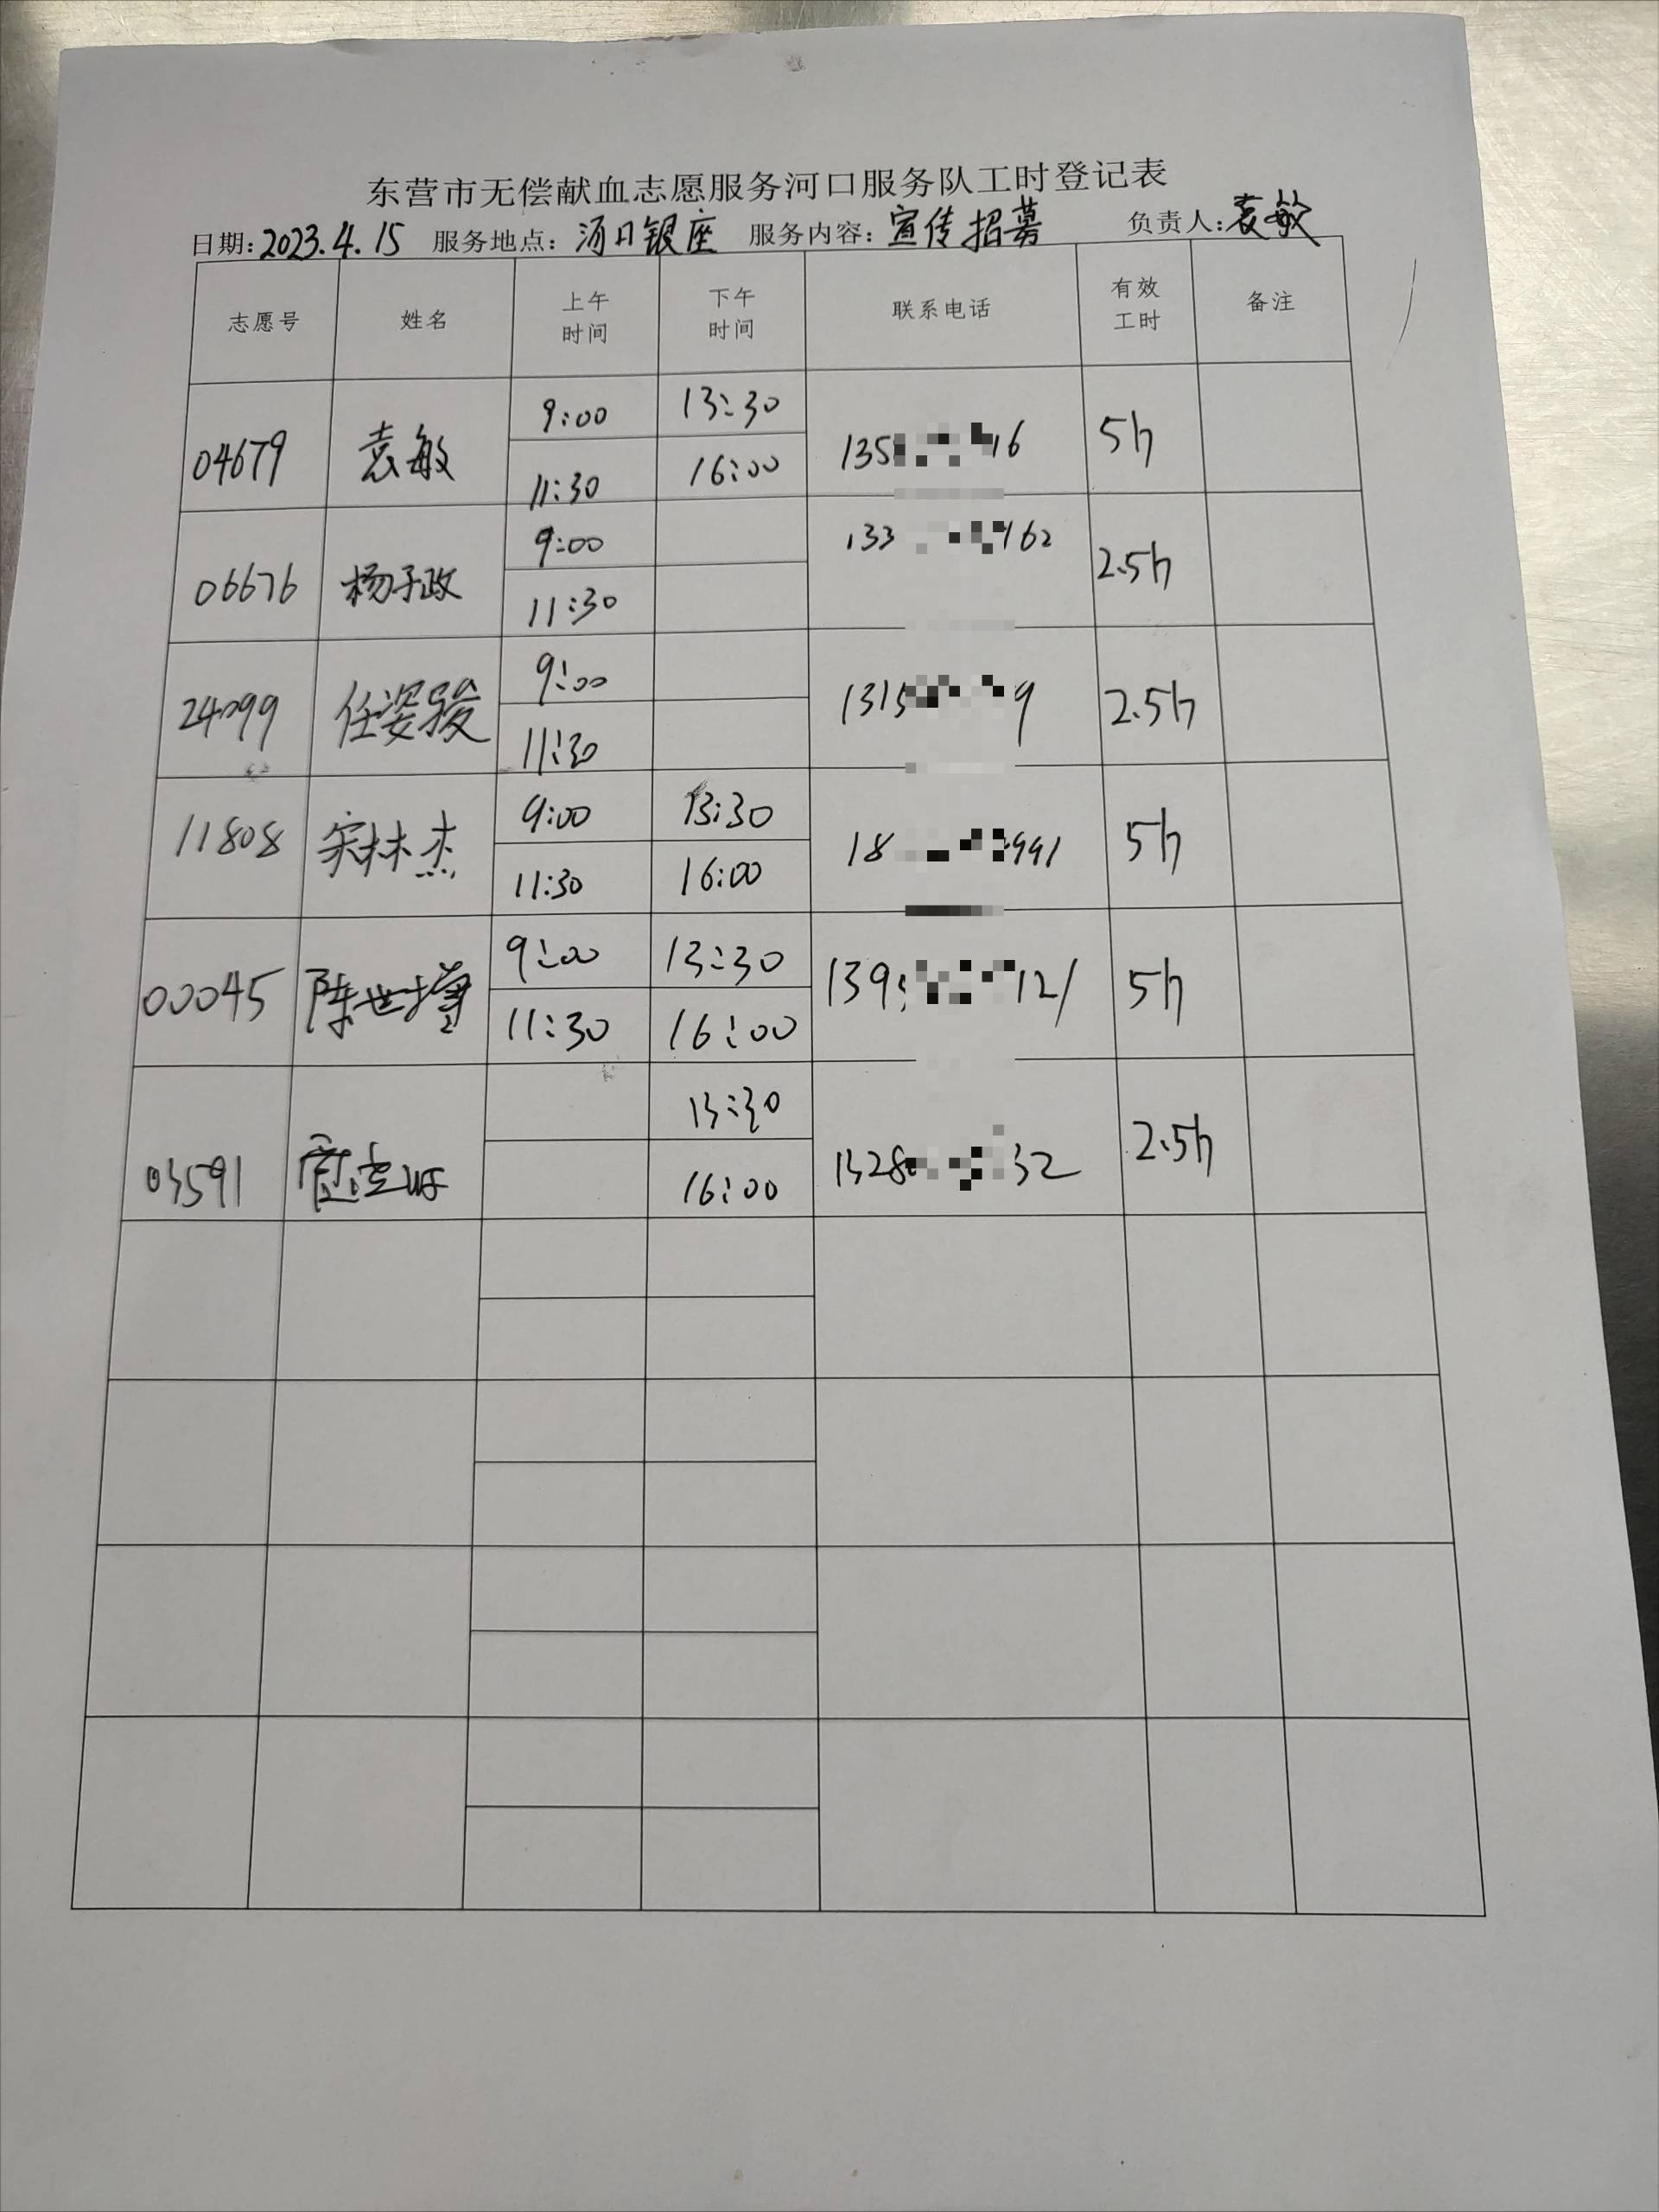 东营市无偿献血志愿服务河口服务队工时登记表
日期: 2023.4.15 服务地点: 河口银座 服务内容: 宣传招募 负责人: 袁敏
志愿号 姓名 上午时间 下午时间 联系电话 有效工时 备注
04679 袁敏 9:00 13:30 135 16 5h
11:30 16:00
06676 杨子政 9:00 133 162 2.5h
11:30
24099 任姿骏 9:00 1315 9 2.5h
11:30
11808 宋林杰 9:00 13:30 18 991 5h
11:30 16:00
00045 陈世增 9:00 13:30 139 121 5h
11:30 16:00
03591 13:30 1328 32 2.5h
16:00